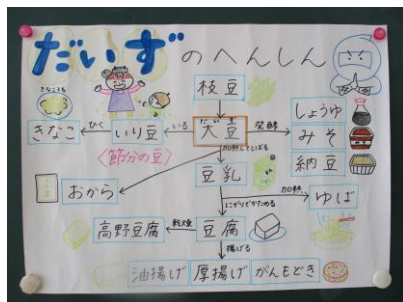 だいずのへんしん
枝豆
きなこもち
きなこ ひく いり豆 いる 大豆 だいず 発酵 しょうゆ
みそ
納豆
〈節分の豆〉
加熱してしぼる
おから 豆乳 加熱 ゆば
にがりでかためる
高野豆腐 乾燥 豆腐
揚げる
油揚げ 厚揚げ がんもどき